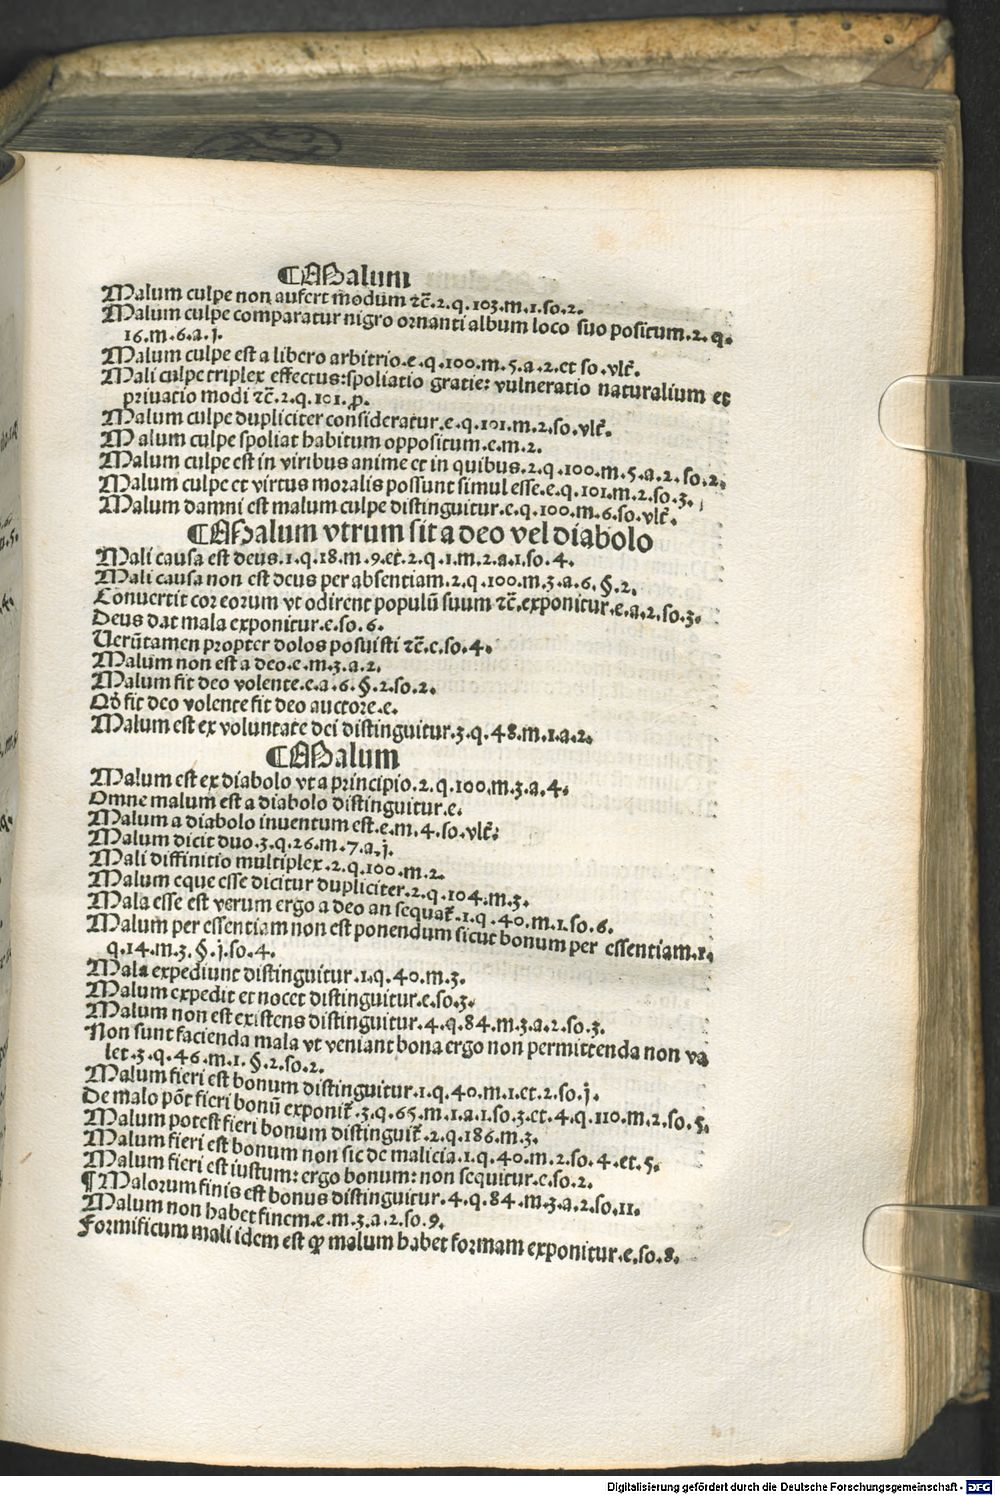 ¶Malum
Malum culpe non aufert modum ⁊c̄.2.q.103.m.1.so.2.
Malum culpe comparatur nigro ornanti album loco suo positum.2.q.
16.m.6.a.j.
Malum culpe est a libero arbitrio.e.q.100.m.5.a.2.et so.vlt̄.
Mali culpe triplex effectus:spoliatio gratie: vulneratio naturalium et
priuatio modi ⁊c̄.2.q.101.ꝓ.
Malum culpe dupliciter consideratur.e.q.101.m.2.so.vlt̄.
Malum culpe spoliat habitum oppositum.e.m.2.
Malum culpe est in viribus anime et in quibus.2.q.100.m.5.a.2.so.2.
Malum culpe et virtus moralis possunt simul esse.e.q.101.m.2.so.3.
Malum damni est malum culpe distinguitur.e.q.100.m.6.so.vlt̄.
¶Malum vtrum sit a deo vel diabolo
Mali causa est deus.1.q.18.m.9.et.2.q.1.m.2.a.1.so.4.
Mali causa non est deus per absentiam.2.q.100.m.3.a.6.§.2.
Conuertit cor eorum vt odirent populū suum ⁊c̄.exponitur.e.a.2.so.3.
Deus dat mala exponitur.e.so.6.
Uerūtamen propter dolos posuisti ⁊c̄.e.so.4.
Malum non est a deo.e.m.3.a.2.
Malum fit deo volente.e.a.6.§.2.so.2.
Qď fit deo volente fit deo auctore.e.
Malum est ex voluntate dei distinguitur.3.q.48.m.1.a.2.
¶Malum
Malum est ex diabolo vt a principio.2.q.100.m.3.a.4.
Omne malum est a diabolo distinguitur.e.
Malum a diabolo inuentum est.e.m.4.so.vlt̄.
Malum dicit duo.3.q.26.m.7.a.j.
Mali diffinitio multiplex.2.q.100.m.2.
Malum eque esse dicitur dupliciter.2.q.104.m.3.
Mala esse est verum ergo a deo an sequat̄.1.q.40.m.1.so.6.
Malum per essentiam non est ponendum sicut bonum per essentiam.1.
q.14.m.3.§.j.so.4.
Mala expediunt distinguitur.1.q.40.m.3.
Malum expedit et nocet distinguitur.e.so.3.
Malum non est existens distinguitur.4.q.84.m.3.a.2.so.3.
Non sunt facienda mala vt veniant bona ergo non permittenda non va
let.3.q.46.m.1.§.2.so.2.
Malum fieri est bonum distinguitur.1.q.40.m.1.et.2.so.j.
De malo pōt fieri bonū exponit̄.3.q.65.m.1.a.1.so.3.et.4.q.110.m.2.so.5.
Malum potest fieri bonum distinguit̄.2.q.186.m.3.
Malum fieri est bonum non sic de malicia.1.q.40.m.2.so.4.et.5.
Malum fieri est iustum: ergo bonum: non sequitur.e.so.2.
¶Malorum finis est bonus distinguitur.4.q.84.m.3.a.2.so.11.
Malum non habet finem.e.m.3.a.2.so.9.
Formificum mali idem est ꝙ malum habet formam exponitur.e.so.8.
Digitalisierung gefördert durch die Deutsche Forschungsgemeinschaft - DFG